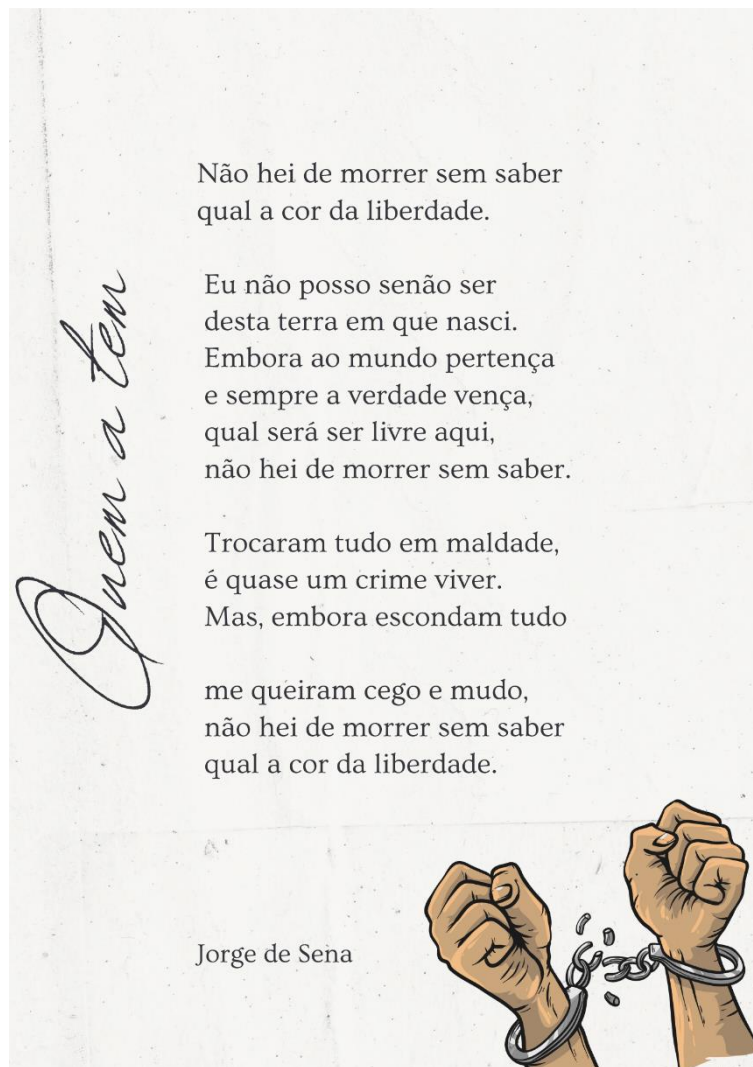 Quem a tem
Não hei de morrer sem saber
qual a cor da liberdade.
Eu não posso senão ser
desta terra em que nasci.
Embora ao mundo pertença
e sempre a verdade vença,
qual será ser livre aqui,
não hei de morrer sem saber.
Trocaram tudo em maldade,
é quase um crime viver.
Mas, embora escondam tudo
me queiram cego e mudo,
não hei de morrer sem saber
qual a cor da liberdade.
Jorge de Sena